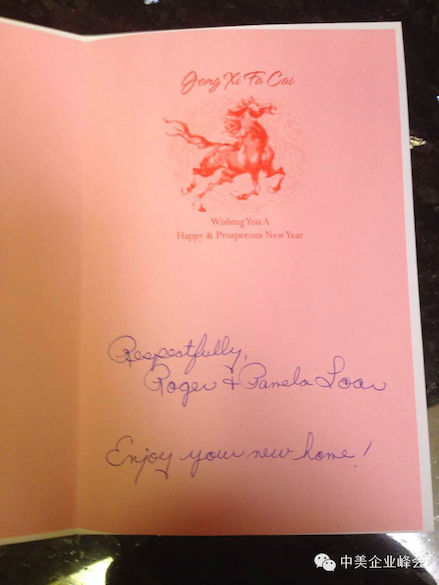 Gong Xi Fa Cai
Wishing You A
Happy & Prosperous New Year
Respectfully,
Roger & Pamela Loar
Enjoy your new home!
中美企业峰会